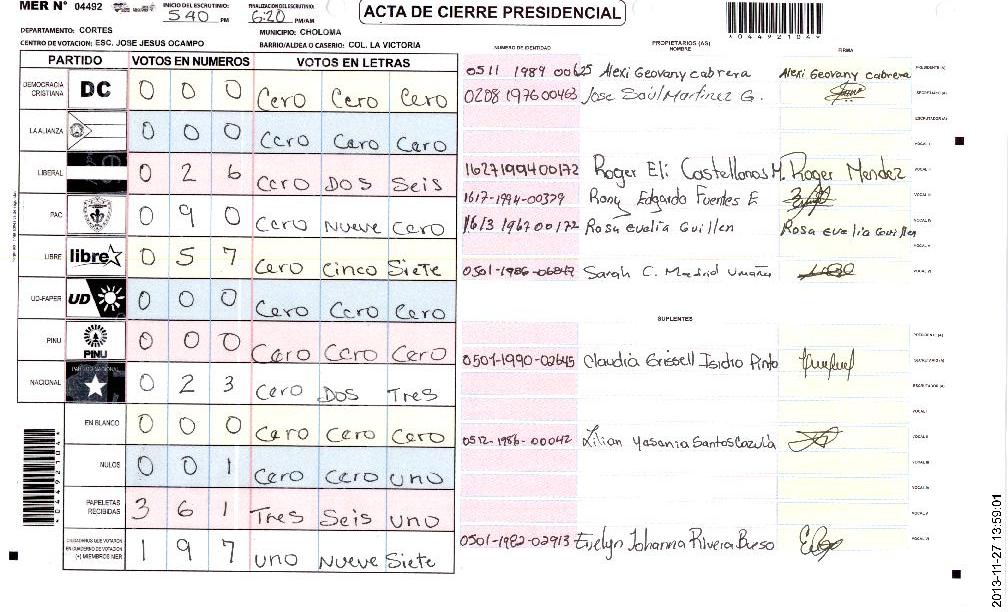 MER N° 04492 INICIO DEL ESCRUTINIO: 5 40 PM FINALIZACION DEL ESCRUTINIO: 6:20 PM/AM
ACTA DE CIERRE PRESIDENCIAL
*04492104*
DEPARTAMENTO: CORTES MUNICIPIO: CHOLOMA
CENTRO DE VOTACION: ESC. JOSE JESUS OCAMPO BARRIO/ALDEA O CASERIO: COL. LA VICTORIA
NUMERO DE IDENTIDAD PROPIETARIOS (AS) NOMBRE FIRMA
PARTIDO VOTOS EN NUMEROS VOTOS EN LETRAS
DEMOCRACIA CRISTIANA DC 0 0 0 Cero Cero Cero
LA ALIANZA 0 0 0 Cero Cero Cero
LIBERAL 0 2 6 Cero Dos Seis
PAC 0 9 0 Cero Nueve Cero
LIBRE libre 0 5 7 Cero Cinco Siete
UD-FAPER UD 0 0 0 Cero Cero Cero
PINU PINU 0 0 0 Cero Cero Cero
NACIONAL PARTIDO NACIONAL 0 2 3 Cero Dos Tres
EN BLANCO 0 0 0 Cero Cero Cero
NULOS 0 0 1 Cero Cero uno
PAPELETAS RECIBIDAS 3 6 1 Tres Seis uno
CIUDADANOS QUE VOTARON EN CUADERNO DE VOTACION (+) MIEMBROS MER 1 9 7 uno Nueve Siete
0511 1989 00625 Alexi Geovany cabrera Alexi Geovany cabrera PRESIDENTE (A)
0208 1976 00463 Jose Saúl Martinez G. SECRETARIO (A)
ESCRUTADOR (A)
VOCAL I
1627 1994 00172 Roger Eli Castellanos M. Roger Mendez VOCAL II
1617-1994-00379 Rony Edgardo Fuentes E VOCAL III
1613 1967 00172 Rosa evelia Guillen Rosa evelia Guillen VOCAL IV
VOCAL V
0501-1986-06847 Sarah C. Madrid Umaña VOCAL VI
SUPLENTES
PRESIDENTE (A)
0501-1990-02645 Claudia Grissell Isidro Pinto SECRETARIO (A)
ESCRUTADOR (A)
VOCAL I
0512-1986-00042 Lilian Yasania Santos Cazula VOCAL II
VOCAL III
VOCAL IV
VOCAL V
0501-1982-02913 Evelyn Johanna Rivera Bueso VOCAL VI
*04492104*
2013-11-27 13:59:01